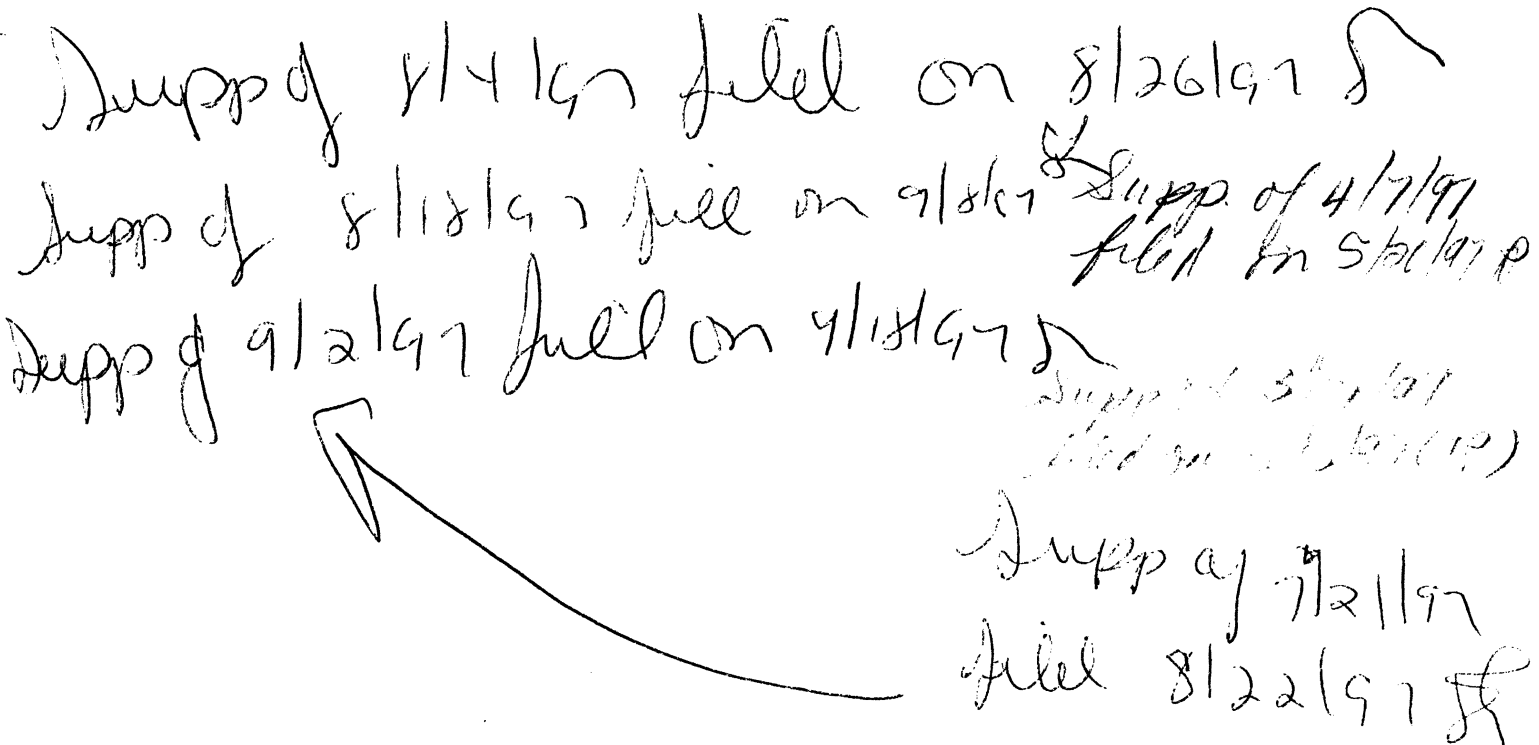 Supp of 8/4/97 filed on 8/26/97
Supp of 8/18/97 filed on 9/8/97
Supp. of 4/7/97
filed on 5/21/97 P
Supp of 9/2/97 filed on 9/18/97
Supp of
filed on
Supp of 7/21/97
filed 8/22/97